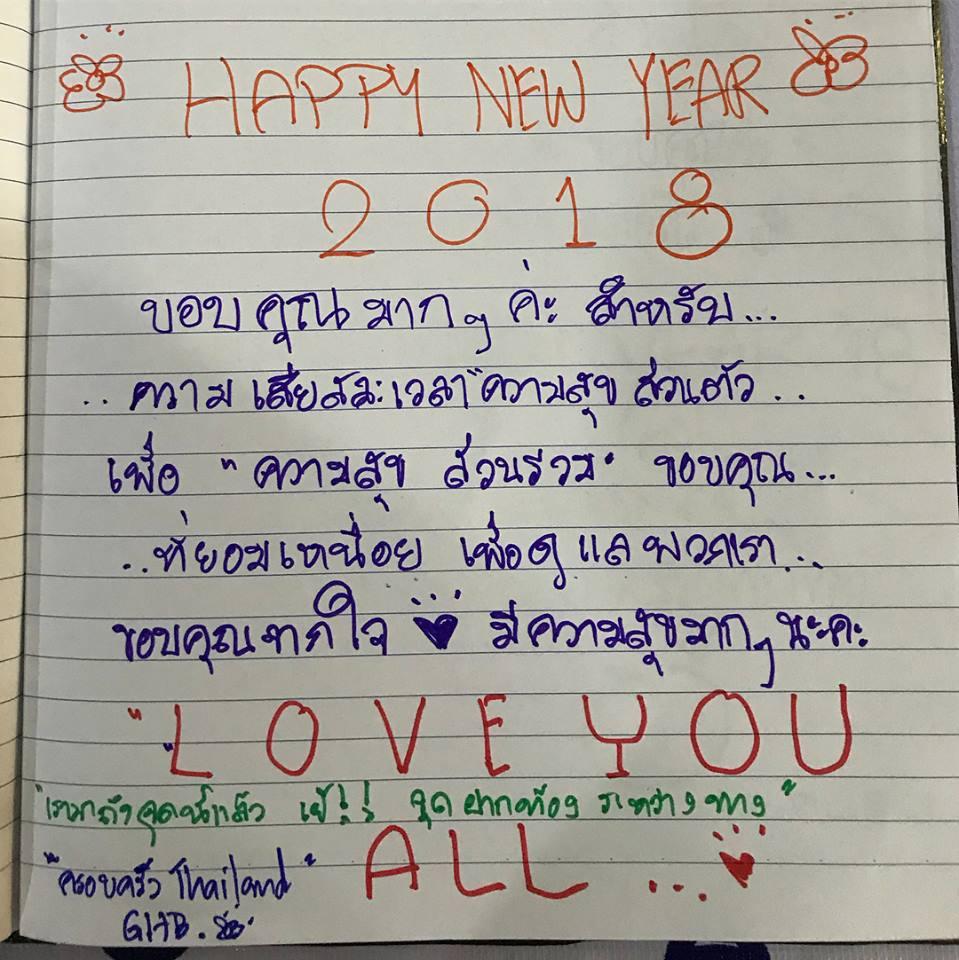 HAPPY NEW YEAR
2018
ขอบคุณมากๆ ค่ะ สำหรับ...
..ความเสียสละเวลา "ความสุข ส่วนตัว..
เพื่อ "ความสุข ส่วนรวม" ขอบคุณ...
..ที่ยอมเหนื่อย เพื่อดูแลพวกเรา...
ขอบคุณจากใจ มีความสุขมากๆ นะคะ
"LOVE YOU
"เรามาถึงจุดนี้แล้ว เย้!! จุด ฝากท้อง ระหว่างทาง"
ALL ...
"ครอบครัว Thailand"
GHB.